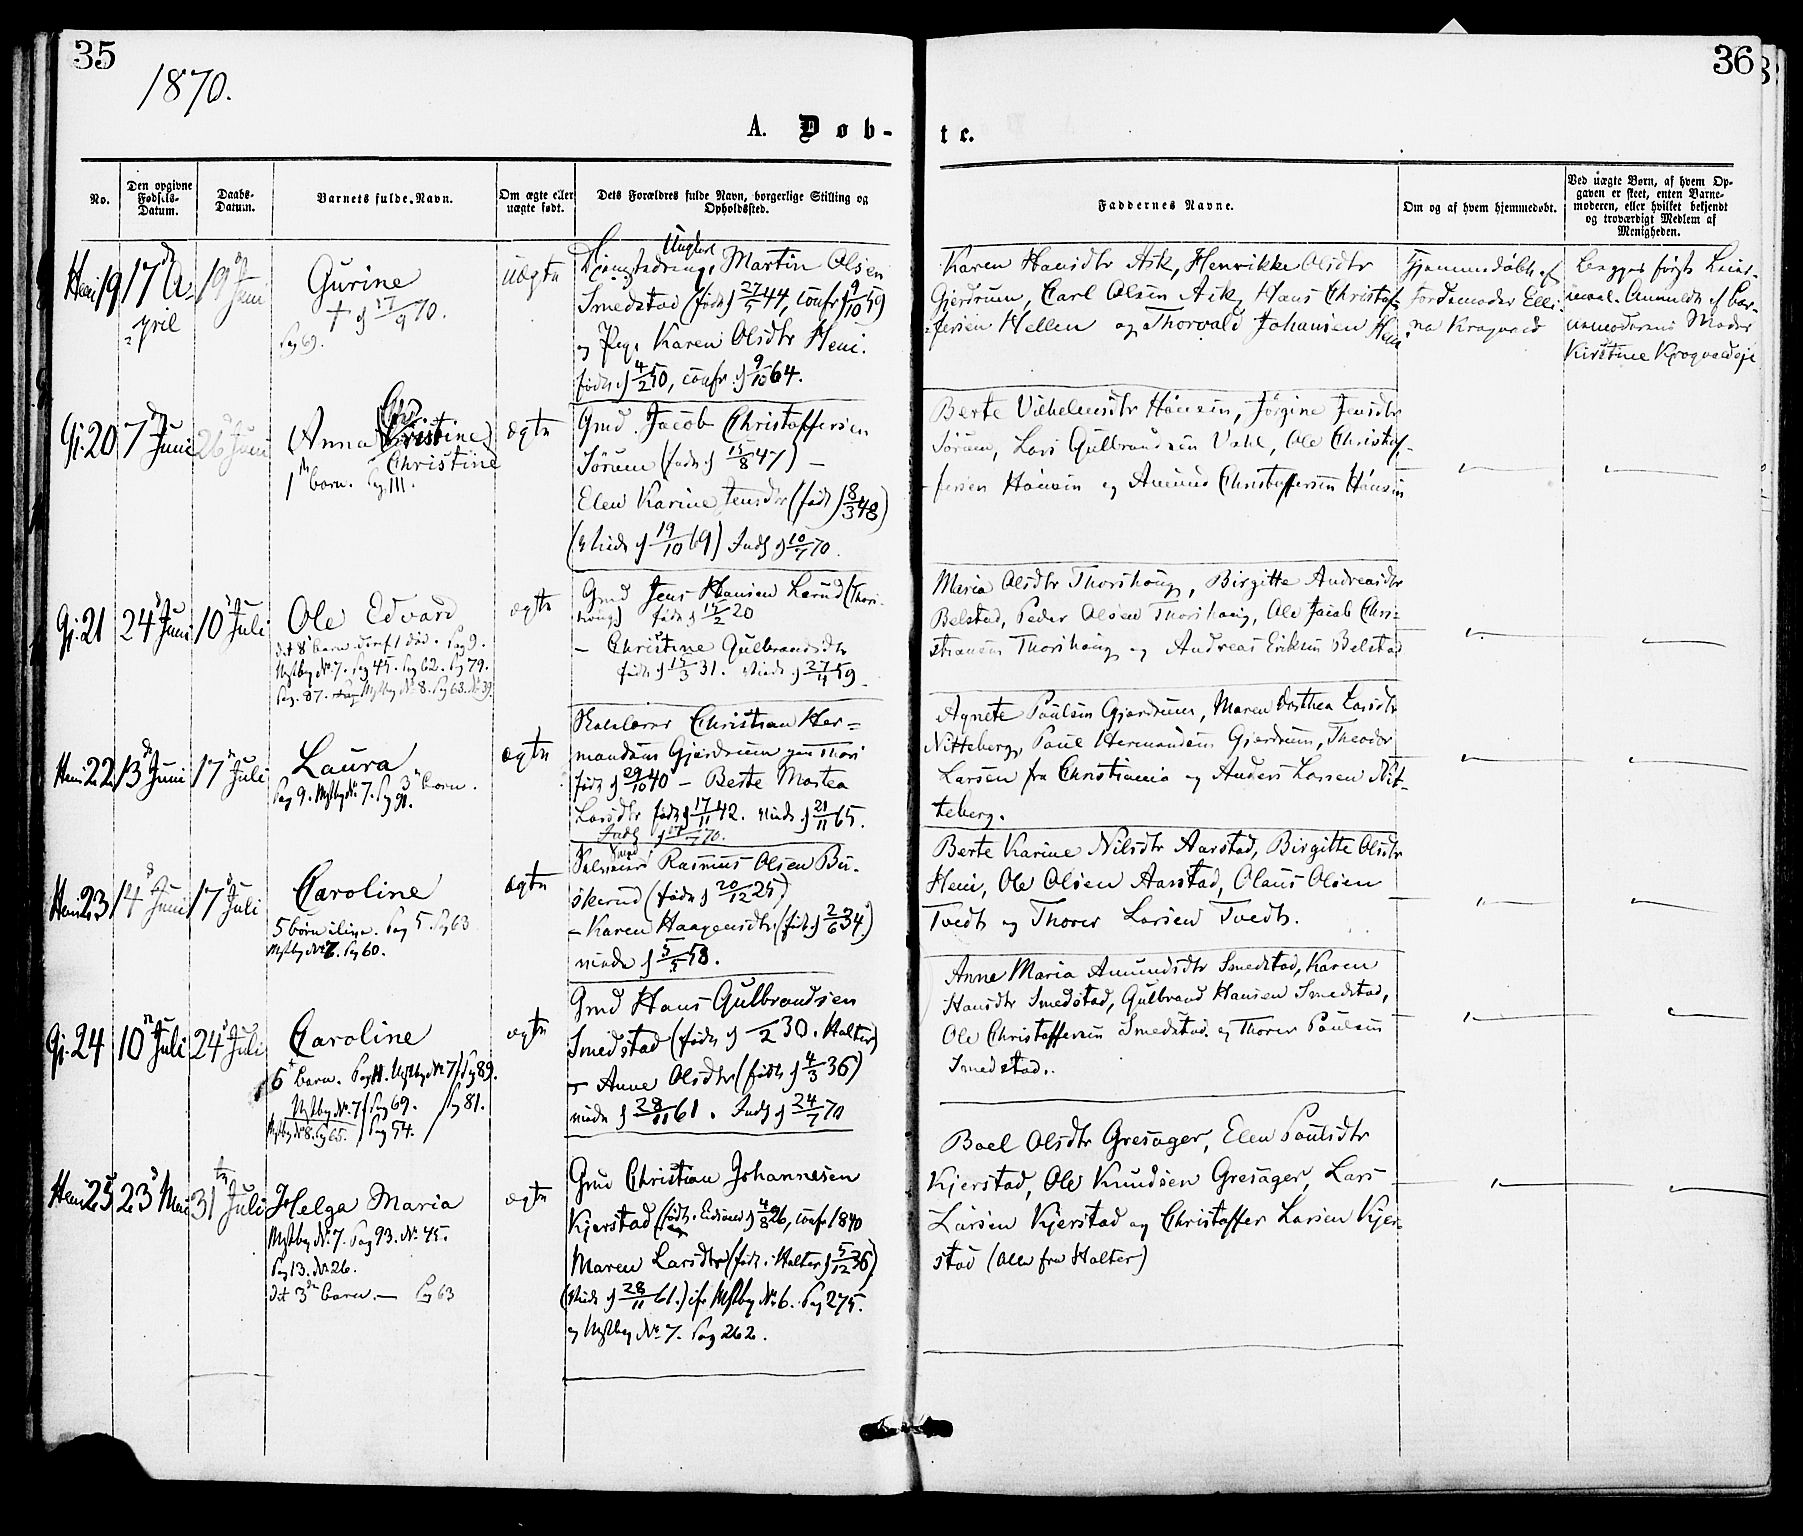 35
36
1870.
A. Døb-
te.
No.
Den opgivne
Fødsels-
Datum.
Daabs-
Datum.
Barnets fulde Navn.
Om ægte eller
uægte født.
Dets Forældres fulde Navn, borgerlige Stilling og
Opholdssted.
Faddernes Navne.
Om og af hvem hjemmedøbt.
Ved uægte Børn, af hvem Op-
gaven er skeet, enten Barne-
moderen, eller hvilket bekjendt
og troværdigt Medlem af
Menigheden.
Heni 19
17de A-
pril
19de Juni
Gurine
† 17/9 70.
Pag 69.
uægte
Ungkarl Martin Olsen
Smedstad (født d 27/5 44, conf. d 9/10 59
og Pige Karen Olsdtr Heni.
født d 4/2 50, conf. d 9/10 64.
Karen Hansdtr Ask, Henrikke Olsdtr
Gjerdrum, Carl Olsen Ask, Hans Christof-
fersen Hellen og Thorvald Johansen Heni
Hjemmedøbt af
Jordemoder Elli-
na Kragerud
begges første Leier-
maal. Anmeldt af Bar-
nemoderens Moder
Kirstine Krogvoldeje
Gj. 20
7de Juni
26de Juni
Anna Christine
Christine
1te barn. Pag. 111.
ægte
Gmd. Jacob Christoffersen
Sørum (født d 15/8 47) –
Elen Karine Jensdtr (født d 8/3 48)
(Viede d 19/10 69) Inds d 10/7 70.
Berte Vilhelmsdtr Hønsen, Jørgine Jensdtr
Sørum, Lars Gulbrandsen Vahl, Ole Christof-
fersen Hønsen og Amund Christoffersen Hønsen
Gj. 21
24de Juni
10de Juli
Ole Edvard
det 8de barn deraf 1 død. Pag 9.
Mstbog No 7. Pag 45. Pag 62. Pag 79.
Pag. 87. Mstbog No 8. Pag 63. No 39.
ægte
Gmd Jens Hansen Lerud (Thors-
houg) født d 15/2 20
– Christine Gulbrandsdtr
født d 15/3 31. Viede d 27/11 59.
Maria Olsdtr Thorshoug, Birgitte Andreasdtr
Belstad, Peder Olsen Thorshoug, Ole Jacob Chri-
stiansen Thorshoug og Andreas Eriksen Belstad
Heni 22
13de Juni
17de Juli
Laura
3de barn.
Pag 9. Mstbog No 7. Pag 91.
ægte
Skolelærer Christian Her-
mansen Gjerdrum
født d 29/10 40 – Berte Martea
Larsdtr født d 17/11 42. Viede d 21/11 65.
Inds d 17/7 70.
Agnete Paulsen Gjerdrum, Maren Dorthea Larsdtr
Nitteberg, Paul Hermansen Gjerdrum, Theodor
Larsen fra Christiania og Anders Larsen Nit-
teberg.
Heni 23
14de Juni
17de Juli
Caroline
5 børn ilive. Pag 5. Pag 63
Mstbog No 7. Pag 60.
ægte
Rasmus Olsen Bu-
skerud (født d 20/12 25)
– Karen Haagensdtr (født d 2/6 34.)
viede d 5/5 58.
Berte Karine Nilsdtr Aarstad, Birgitte Olsdtr
Heni, Ole Olsen Aarstad, Olaus Olsen
Tvedt og Thorer Larsen Tvedt.
Gj. 24
10de Juli
24de Juli
Caroline
6te barn. Pag 11. Mstbog No 7 Pag 89.
Mstbog No 7 Pag 69. Pag 81.
Mstbog No 8. Pag 65. Pag 54.
ægte
Gmd Hans Gulbrandsen
Smedstad (født d /2 30. Holter)
– Anne Olsdtr (født d 4/3 36)
viede d 28/11 61. Inds d 24/7 70
Anne Maria Amundsdtr Smedstad, Karen
Hansdtr Smedstad, Gulbrand Hansen Smedstad,
Ole Christoffersen Smedstad og Thorer Paulsen
Smedstad.
Heni 25
23de Mai
31te Juli
Helga Maria
Mstbog No 7. Pag 93. No 45.
Pag 13. No 26.
det 3de barn. – Pag 63
ægte
Gmd Christian Johannesen
Kjerstad (født i Eidsvold d 4/8 26, conf. 1840
Maren Larsdtr (født i Holter d 5/12 36)
(Viede d 28/11 61.) cfr Mstbog No 6. Pag 275.
og Mstbog No 7. Pag 262.
Boel Olsdtr Gresager, Elen Paulsdtr
Kjerstad, Ole Knudsen Gresager, Lars
Larsen Kjerstad og Christoffer Larsen Kjer-
stad (Alle fra Holter)